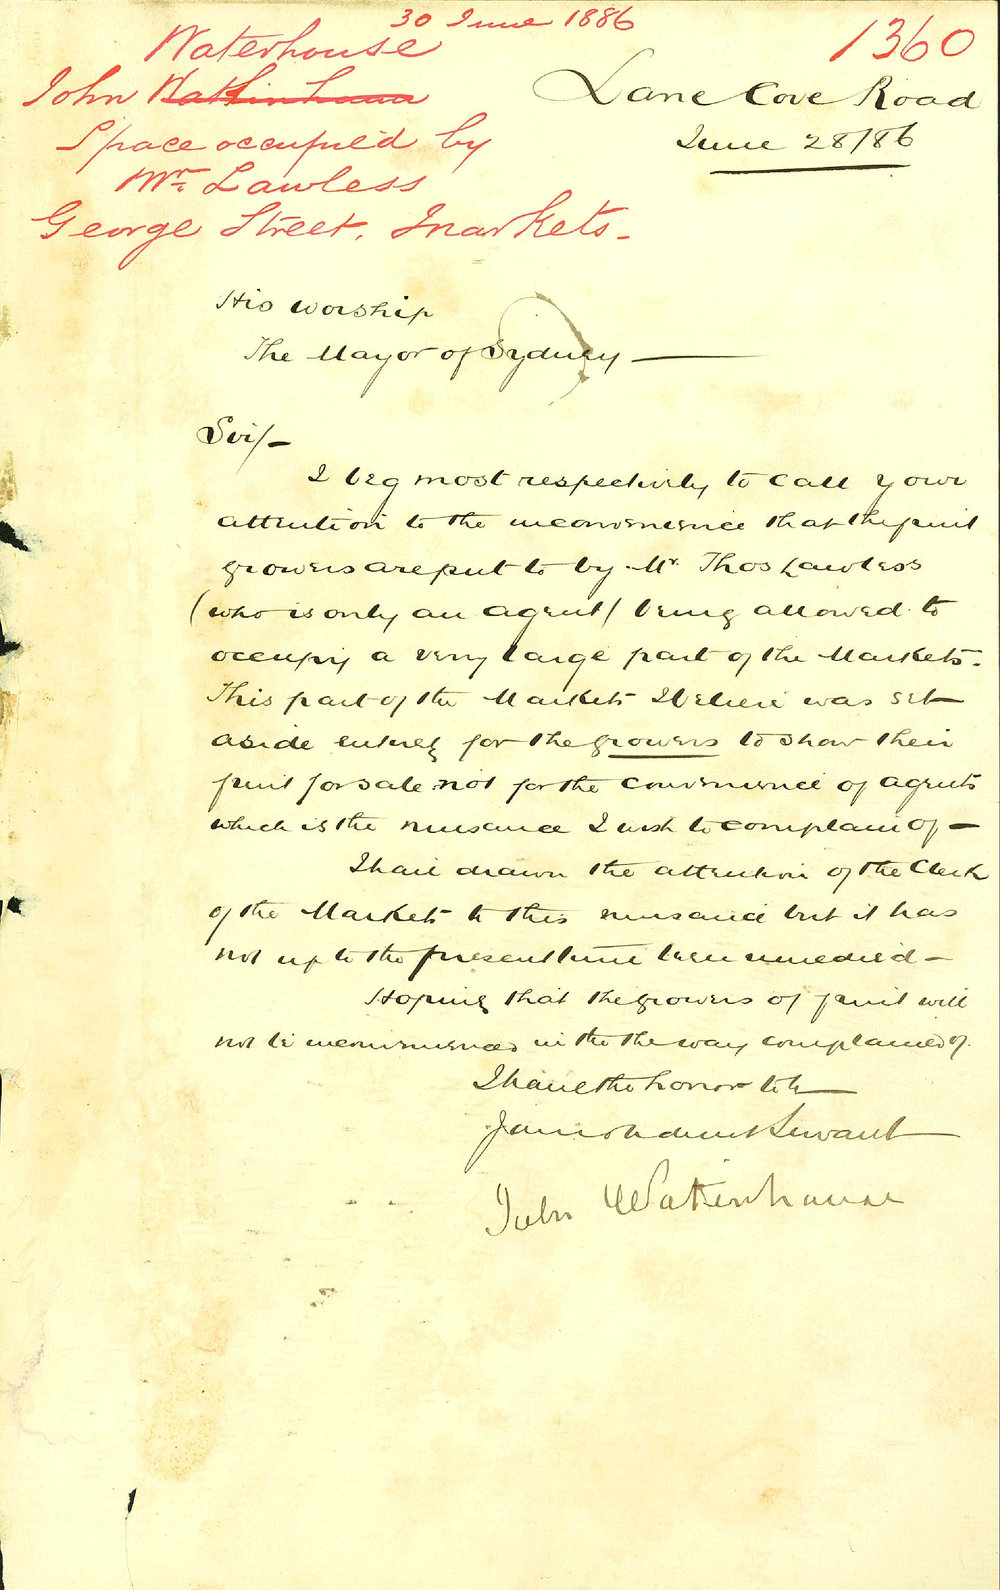 30 June 1886
1360
Waterhouse
John Watkinhaua
Space occupied by
Mr. Lawless
George Street, Markets.
Lane Cove Road
June 28/86
His Worship
The Mayor of Sydney
Sir/-
I beg most respectively to call your
attention to the inconvenience that the fruit
growers are put to by Mr. Thos Lawless
(who is only an agent) being allowed to
occupy a very large part of the Markets.
This part of the Markets I believe was set
aside entirely for the growers to show their
fruit for sale not for the convenience of agents
which is the nuisance I wish to complain of -
I have drawn the attention of the Clerk
of the Markets to this nuisance but it has
not up to the present time been remedied -
Hoping that the growers of fruit will
not be inconvenienced in the the way complained of.
I have the honor to be
Your obedient Servant
John Waterhouse